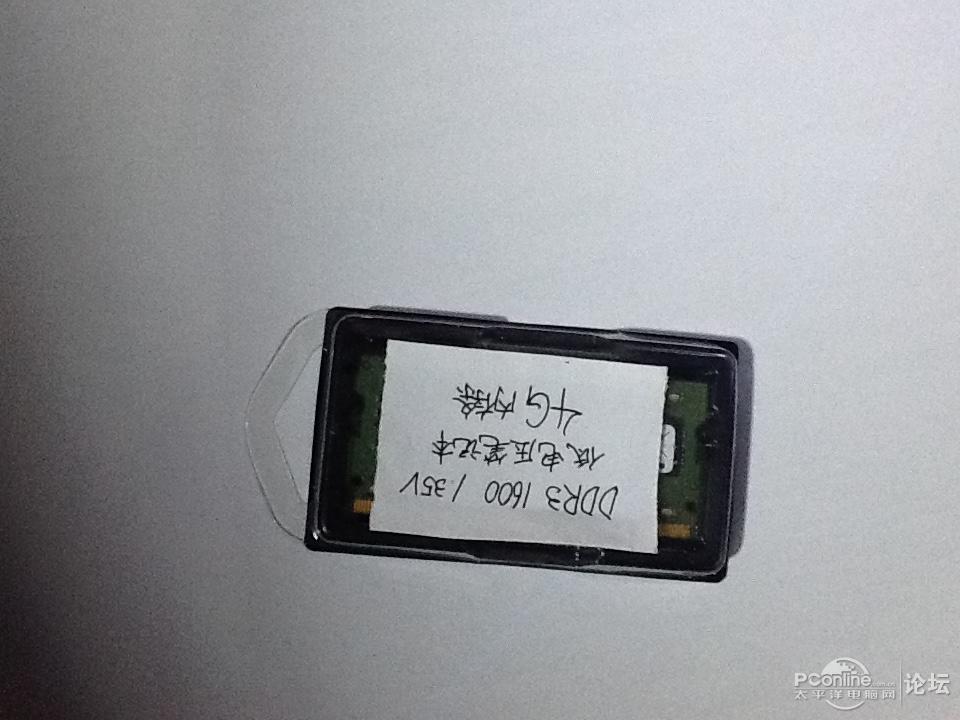 DDR3 1600 1.35V
低电压笔记本
4G内存条
PConline.com.cn
太平洋电脑网
论坛